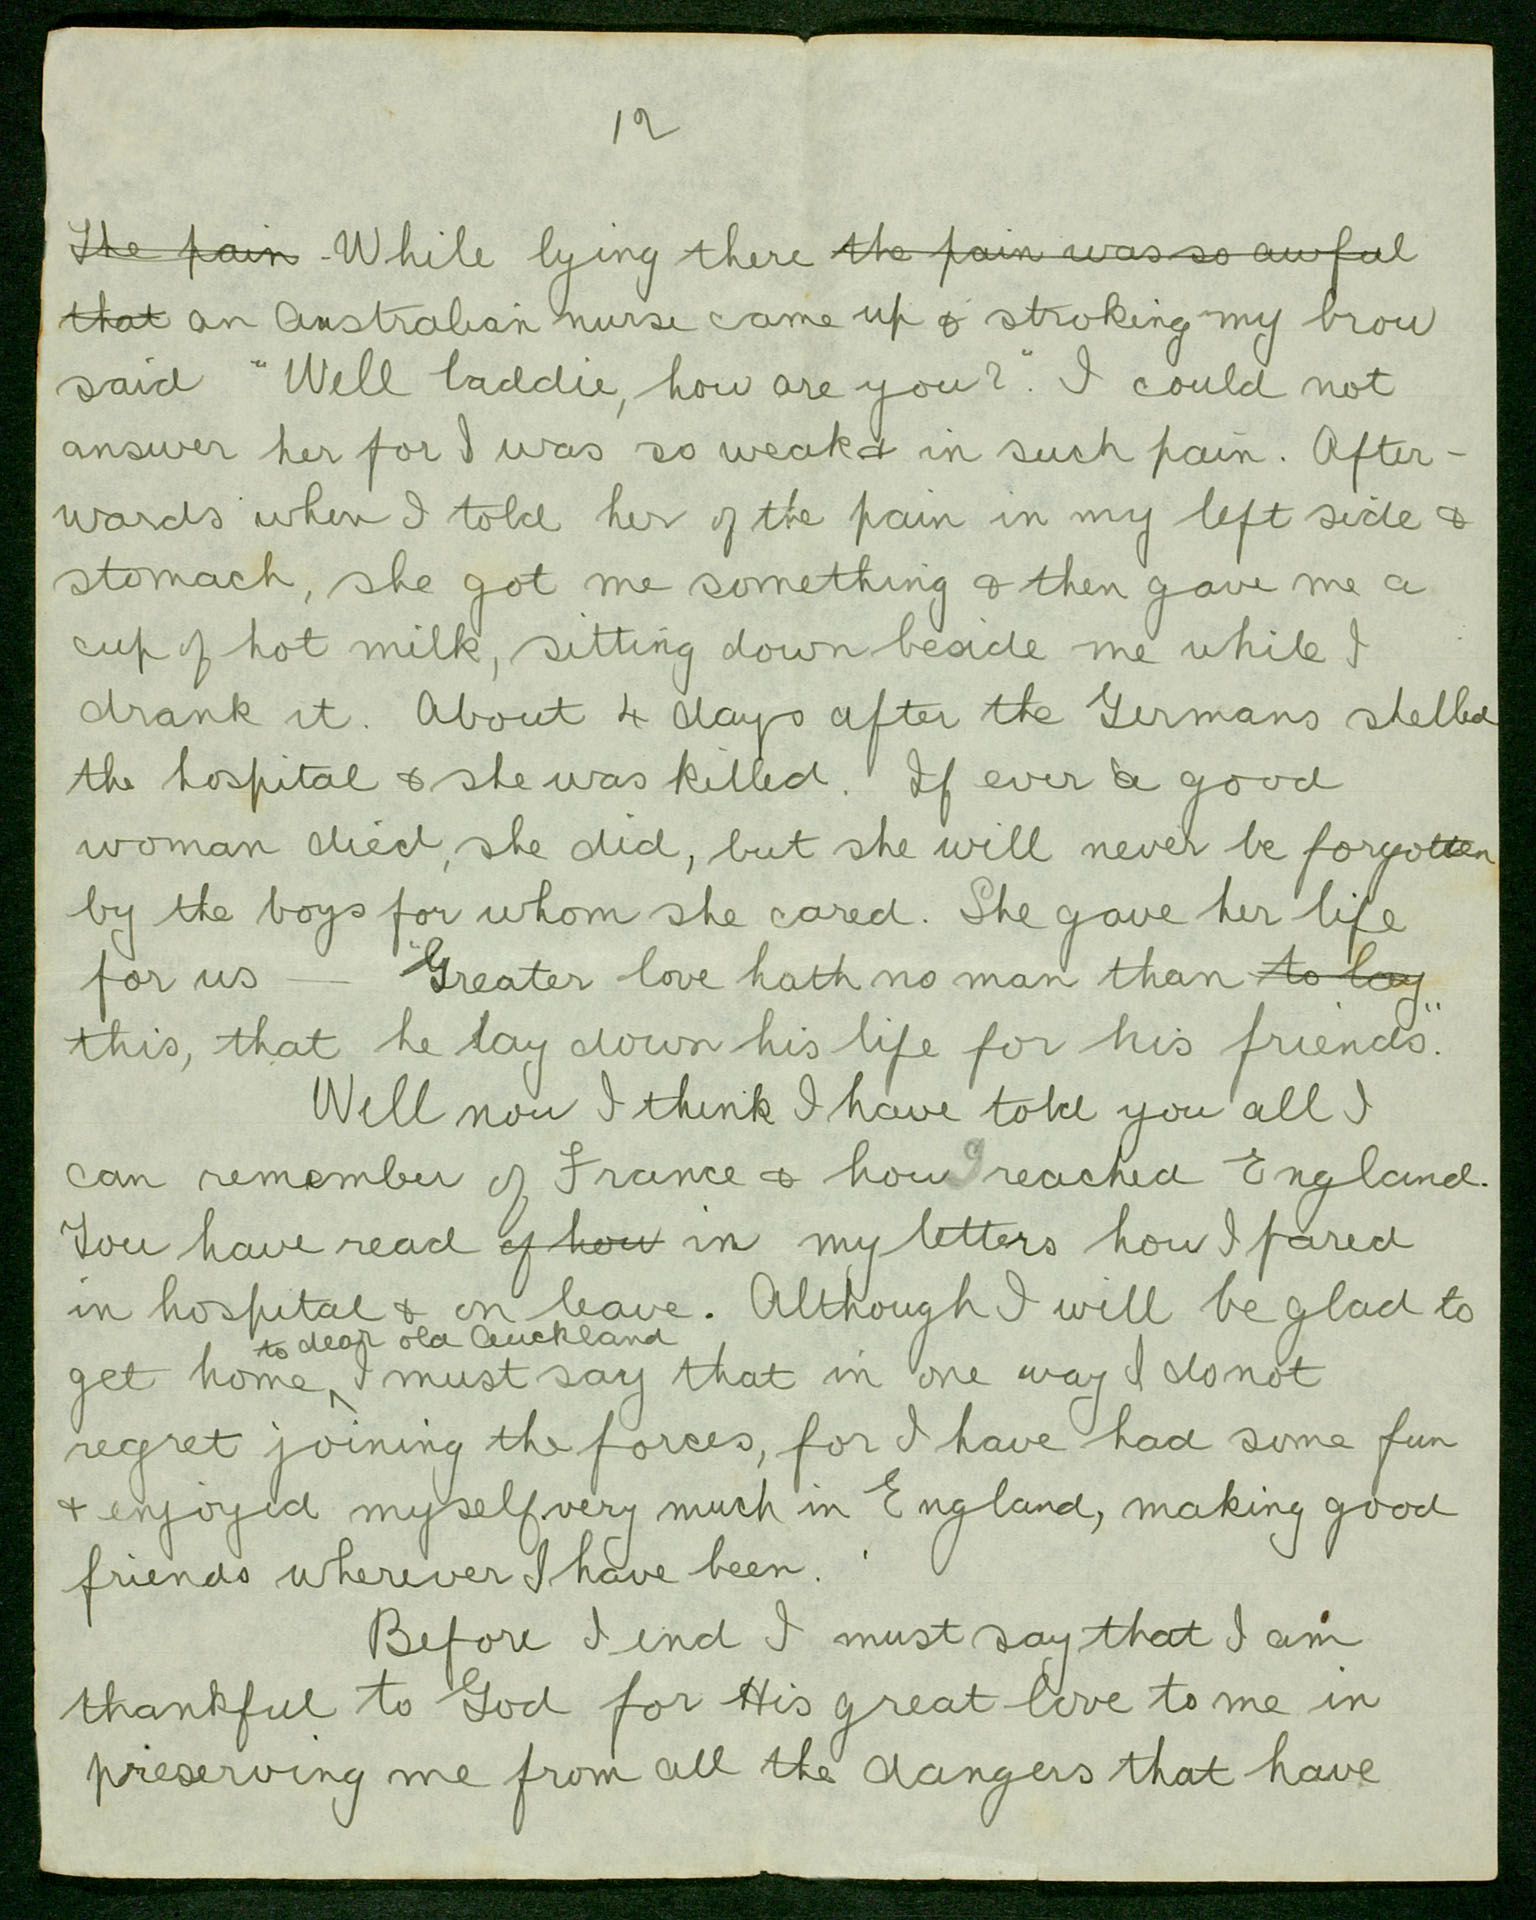 12
The pain - While lying there the pain was so awful
that an Australian nurse came up & stroking my brow
said "Well laddie, how are you?". I could not
answer her for I was so weak & in such pain. After-
wards when I told her of the pain in my left side &
stomach, she got me something & then gave me a
cup of hot milk, sitting down beside me while I
drank it. About 4 days after the Germans shelled
the hospital & she was killed. If ever a good
woman died, she did, but she will never be forgotten
by the boys for whom she cared. She gave her life
for us — "Greater love hath no man than to lay
this, that he lay down his life for his friends".
Well now I think I have told you all I
can remember of France & how I reached England.
You have read of how in my letters how I fared
in hospital & on leave. Although I will be glad to
to dear old Auckland
get home, I must say that in one way I do not
regret joining the forces, for I have had some fun
& enjoyed myself very much in England, making good
friends wherever I have been.
Before I end I must say that I am
thankful to God for His great love to me in
preserving me from all the dangers that have